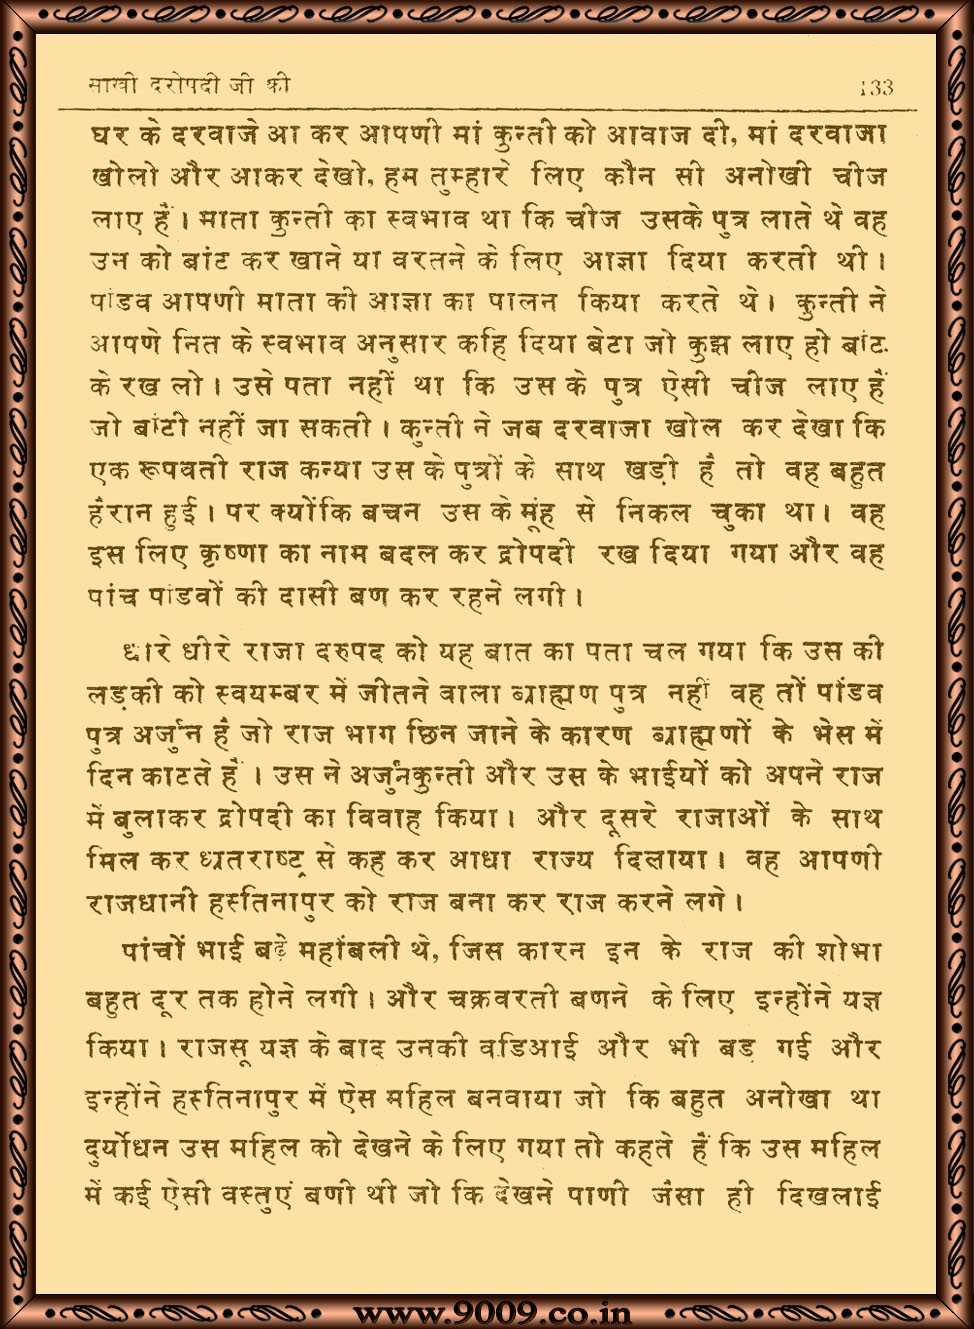 साखी दरोपदी जी की 133
घर के दरवाजे आ कर आपणी मां कुन्ती को आवाज दी, मां दरवाजा
खोलो और आकर देखो, हम तुम्हारे लिए कौन सी अनोखी चीज
लाए हैं । माता कुन्ती का स्वभाव था कि चीज उसके पुत्र लाते थे वह
उन को बांट कर खाने या वरतने के लिए आज्ञा दिया करती थी ।
पांडव आपणी माता की आज्ञा का पालन किया करते थे । कुन्ती ने
आपणे नित के स्वभाव अनुसार कहि दिया बेटा जो कुझ लाए हो बांट
के रख लो । उसे पता नहीं था कि उस के पुत्र ऐसी चीज लाए हैं
जो बांटी नहीं जा सकती । कुन्ती ने जब दरवाजा खोल कर देखा कि
एक रूपवती राज कन्या उस के पुत्रों के साथ खड़ी है तो वह बहुत
हैरान हुई । पर क्योंकि बचन उस के मूंह से निकल चुका था । वह
इस लिए कृष्णा का नाम बदल कर द्रोपदी रख दिया गया और वह
पांच पांडवों की दासी बण कर रहने लगी ।
धीरे धीरे राजा दरुपद को यह बात का पता चल गया कि उस की
लड़की को स्वयम्बर में जीतने वाला ब्राह्मण पुत्र नहीं वह तों पांडव
पुत्र अर्जुन है जो राज भाग छिन जाने के कारण ब्राह्मणों के भेस में
दिन काटते हैं । उस ने अर्जुनकुन्ती और उस के भाईयों को अपने राज
में बुलाकर द्रोपदी का विवाह किया । और दूसरे राजाओं के साथ
मिल कर ध्रातराष्ट्र से कह कर आधा राज्य दिलाया । वह आपणी
राजधानी हस्तिनापुर को राज बना कर राज करने लगे ।
पांचों भाई बढ़े महांबली थे, जिस कारन इन के राज की शोभा
बहुत दूर तक होने लगी । और चक्रवरती बणने के लिए इन्होंने यज्ञ
किया । राजसू यज्ञ के बाद उनकी वडिआई और भी बड़ गई और
इन्होंने हस्तिनापुर में ऐस महिल बनवाया जो कि बहुत अनोखा था
दुर्योधन उस महिल को देखने के लिए गया तो कहते हैं कि उस महिल
में कई ऐसी वस्तुएं बणी थी जो कि देखने पाणी जैसा ही दिखलाई
www.9009.co.in